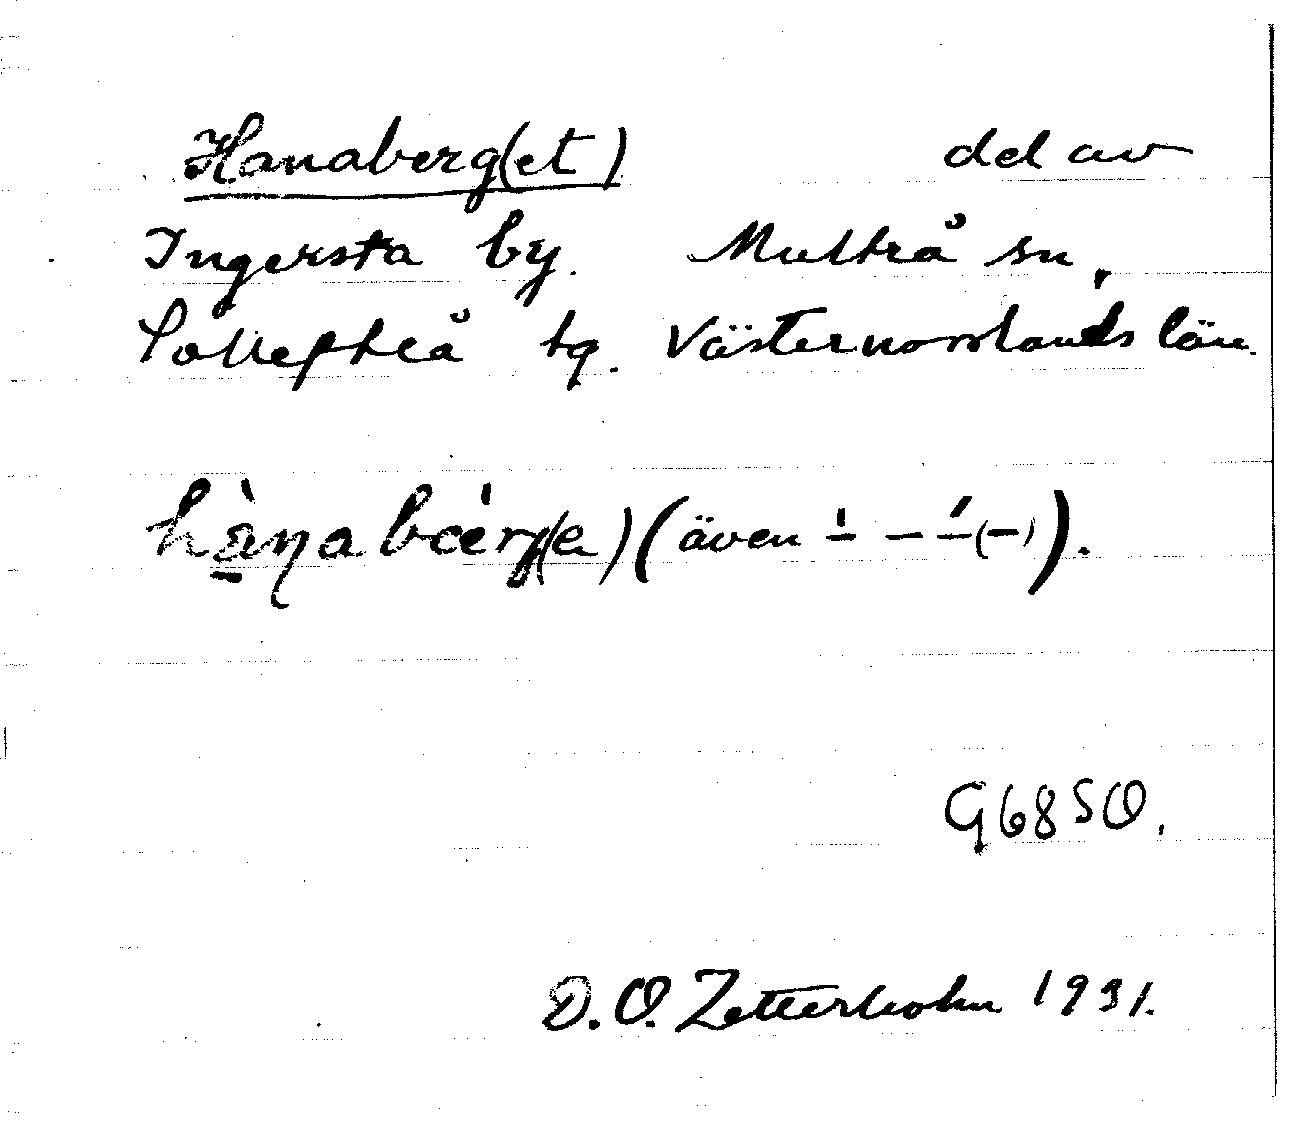 Hanaberg(et) del av
Ingersta by. Multrå sn,
Sollefteå tg. Västernorrlands län.
(även
G6850.
D.O. Zetterholm 1931.